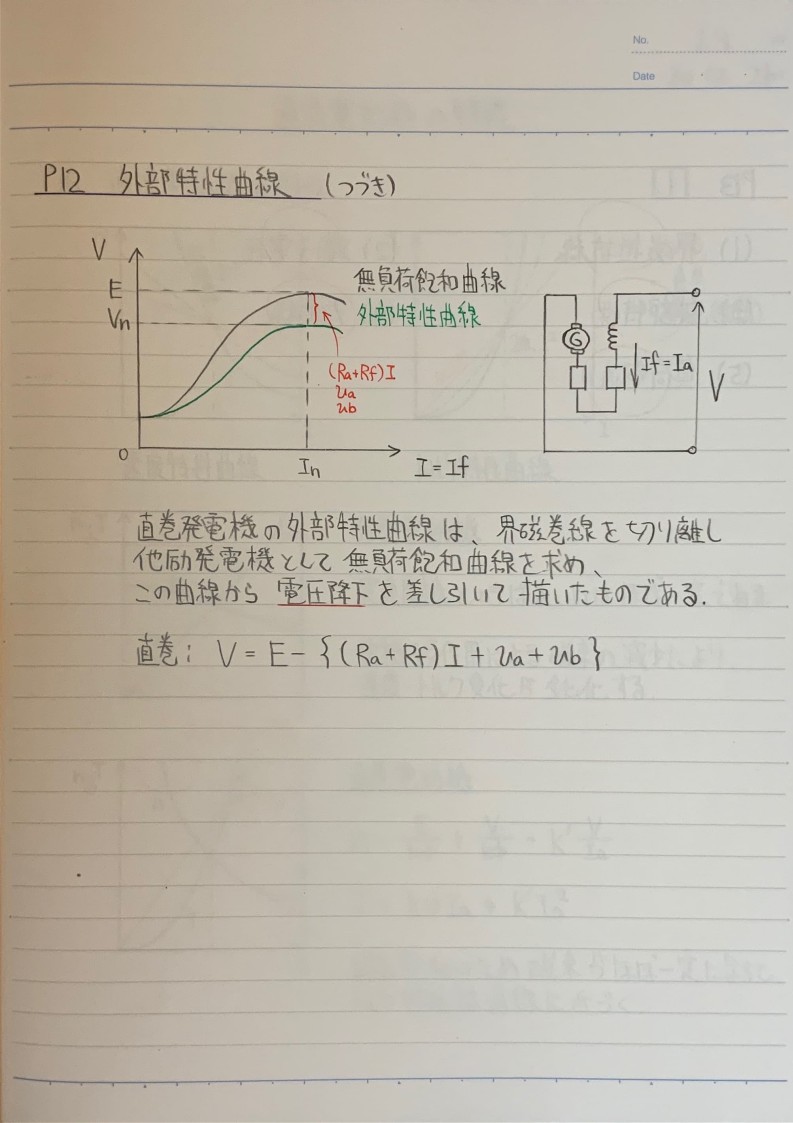 No.
Date
P12 外部特性曲線 (つづき)
V
E
Vn
0
In
I=If
無負荷飽和曲線
外部特性曲線
(Ra+Rf)I
va
vb
G
If=Ia
V
直巻発電機の外部特性曲線は、界磁巻線を切り離し
他励発電機として無負荷飽和曲線を求め、
この曲線から電圧降下を差し引いて描いたものである.
直巻: V = E-{(Ra+Rf)I+va+vb}